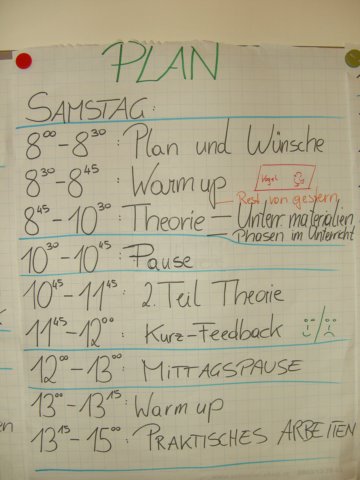 PLAN
SAMSTAG:
8⁰⁰-8³⁰: Plan und Wünsche
8³⁰-8⁴⁵: Warm up
Vogel
— Rest von gestern
8⁴⁵-10³⁰: Theorie — Unterr.materialien
— Phasen im Unterricht
10³⁰-10⁴⁵: Pause
10⁴⁵-11⁴⁵: 2. Teil Theorie
11⁴⁵-12⁰⁰: Kurz-Feedback
12⁰⁰-13⁰⁰: MITTAGSPAUSE
13⁰⁰-13¹⁵: Warm up
13¹⁵-15⁰⁰: PRAKTISCHES ARBEITEN